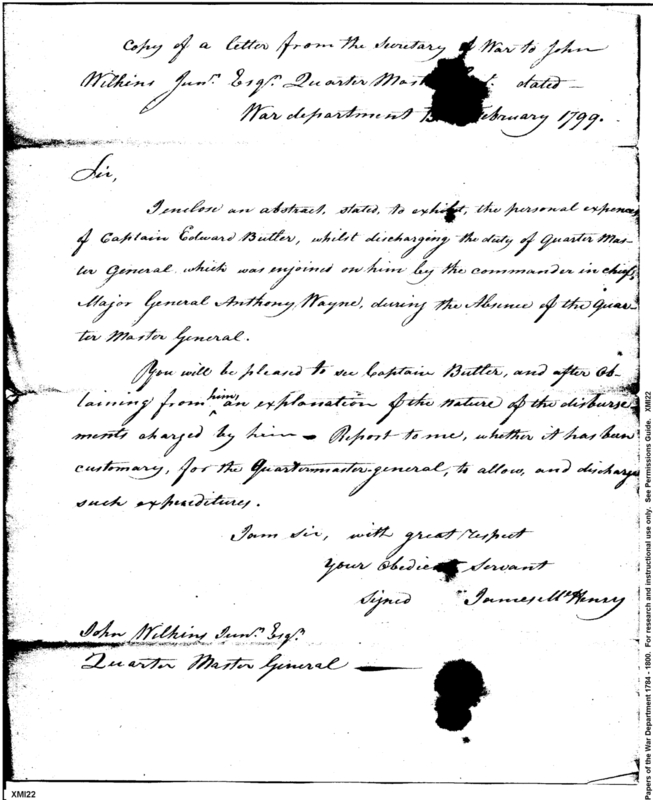 Copy of a letter from the Secretary of War to John
Wilkins Junr. Esqr. Quarter Mast dated
War department February 1799.
Sir,
I enclose an abstract, stated, to exhibit, the personal expences
of Captain Edward Butler, whilst discharging the duty of Quarter Mas-
ter General which was enjoined on him by the commander in chief,
Major General Anthony Wayne, during the Absence of the Quar-
ter Master General.
You will be pleased to see Captain Butler, and after ob-
taining from him an explanation of the nature of the disburse
ments charged by him – Report to me, whether it has been
customary, for the Quartermaster general, to allow, and discharge
such expenditures.
I am sir, with great respect
your obedient servant
signed James McHenry
John Wilkins Junr. Esqr.
Quarter Master General
XMI22
Papers of the War Department 1784 - 1800. For research and instructional use only. See Permissions Guide. XMI22